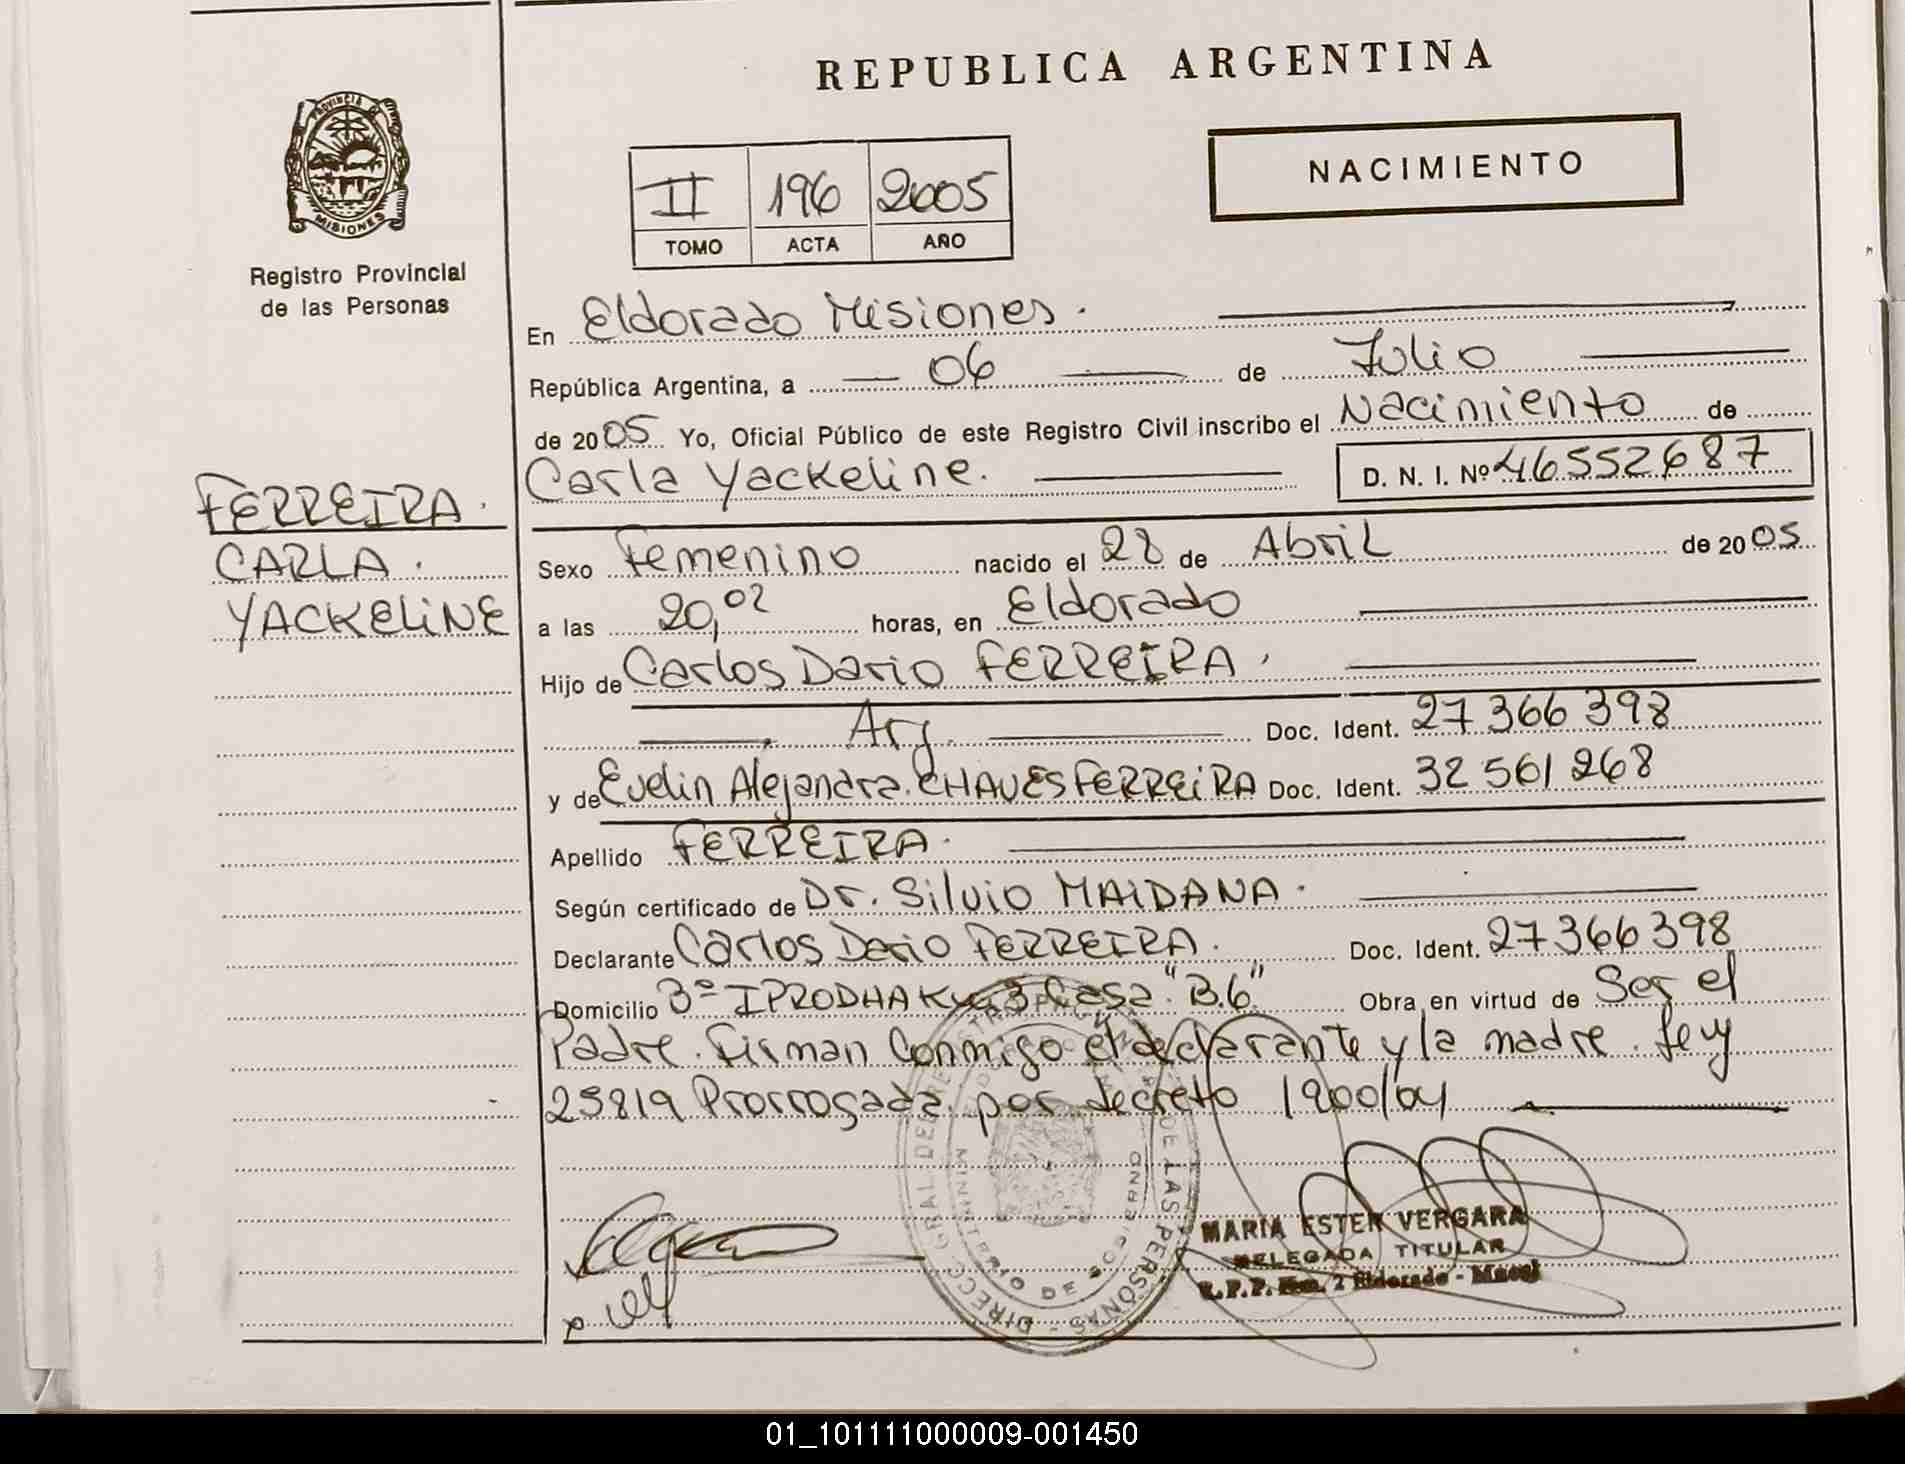 REPUBLICA ARGENTINA
PROVINCIA DE
MISIONES
Registro Provincial
de las Personas
NACIMIENTO
II 196 2005
TOMO ACTA AÑO
En Eldorado Misiones.
República Argentina, a 06 de Julio
de 2005 Yo, Oficial Público de este Registro Civil inscribo el Nacimiento de
Carla Yackeline. D. N. I. Nº 46552687
FERREIRA.
CARLA.
YACKELINE
Sexo Femenino nacido el 28 de Abril de 2005
a las 20,02 horas, en Eldorado
Hijo de Carlos Dario FERREIRA,
Arg. Doc. Ident. 27 366 398
y de Evelin Alejandra. CHAVES FERREIRA Doc. Ident. 32 561 268
Apellido FERREIRA.
Según certificado de Dr. Silvio MAIDANA.
Declarante Carlos Dario FERREIRA. Doc. Ident. 27366398
Domicilio 3º IPRODHA Km 3 Casa "B.6" Obra en virtud de Ser el
Padre. Firman Conmigo el declarante y la madre. Ley
25819 Prorrogada por decreto 1900/04
DIRECC. GRAL. DEL REGISTRO DE LAS PERSONAS
MINISTERIO DE GOBIERNO
MARIA ESTER VERGARA
DELEGADA TITULAR
R.P.P. Km. 2 Eldorado - Mnes
01_101111000009-001450